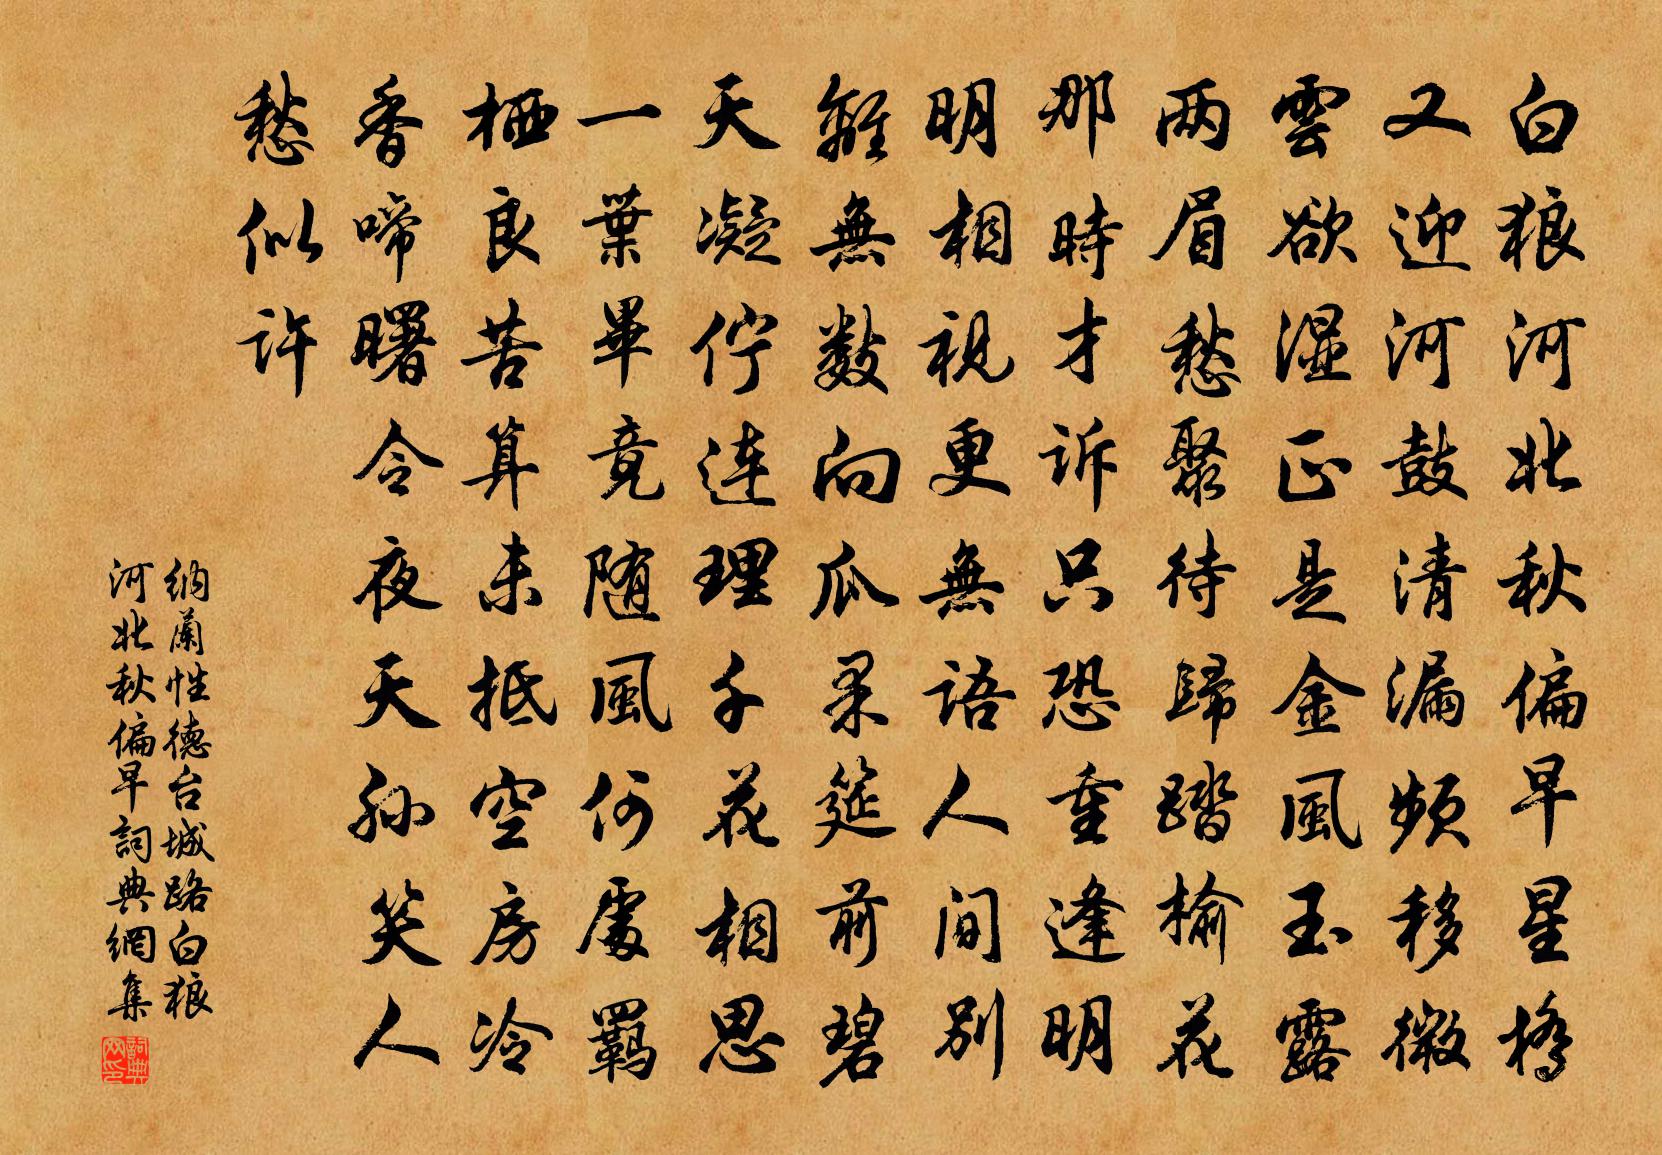 白狼河北秋偏早星橋
又迎河鼓清漏頻移微
雲欲湿正是金風玉露
两眉愁聚待歸踏榆花
那時才诉只恐重逢明
明相視更無語人间别
離無數向瓜果筵前碧
天凝佇连理千花相思
一葉畢竟随風何處羁
栖良苦算未抵空房冷
香啼曙令夜天孙笑人
愁似许
纳蘭性德台城路白狼
河北秋偏早詞典網集
詞典网印